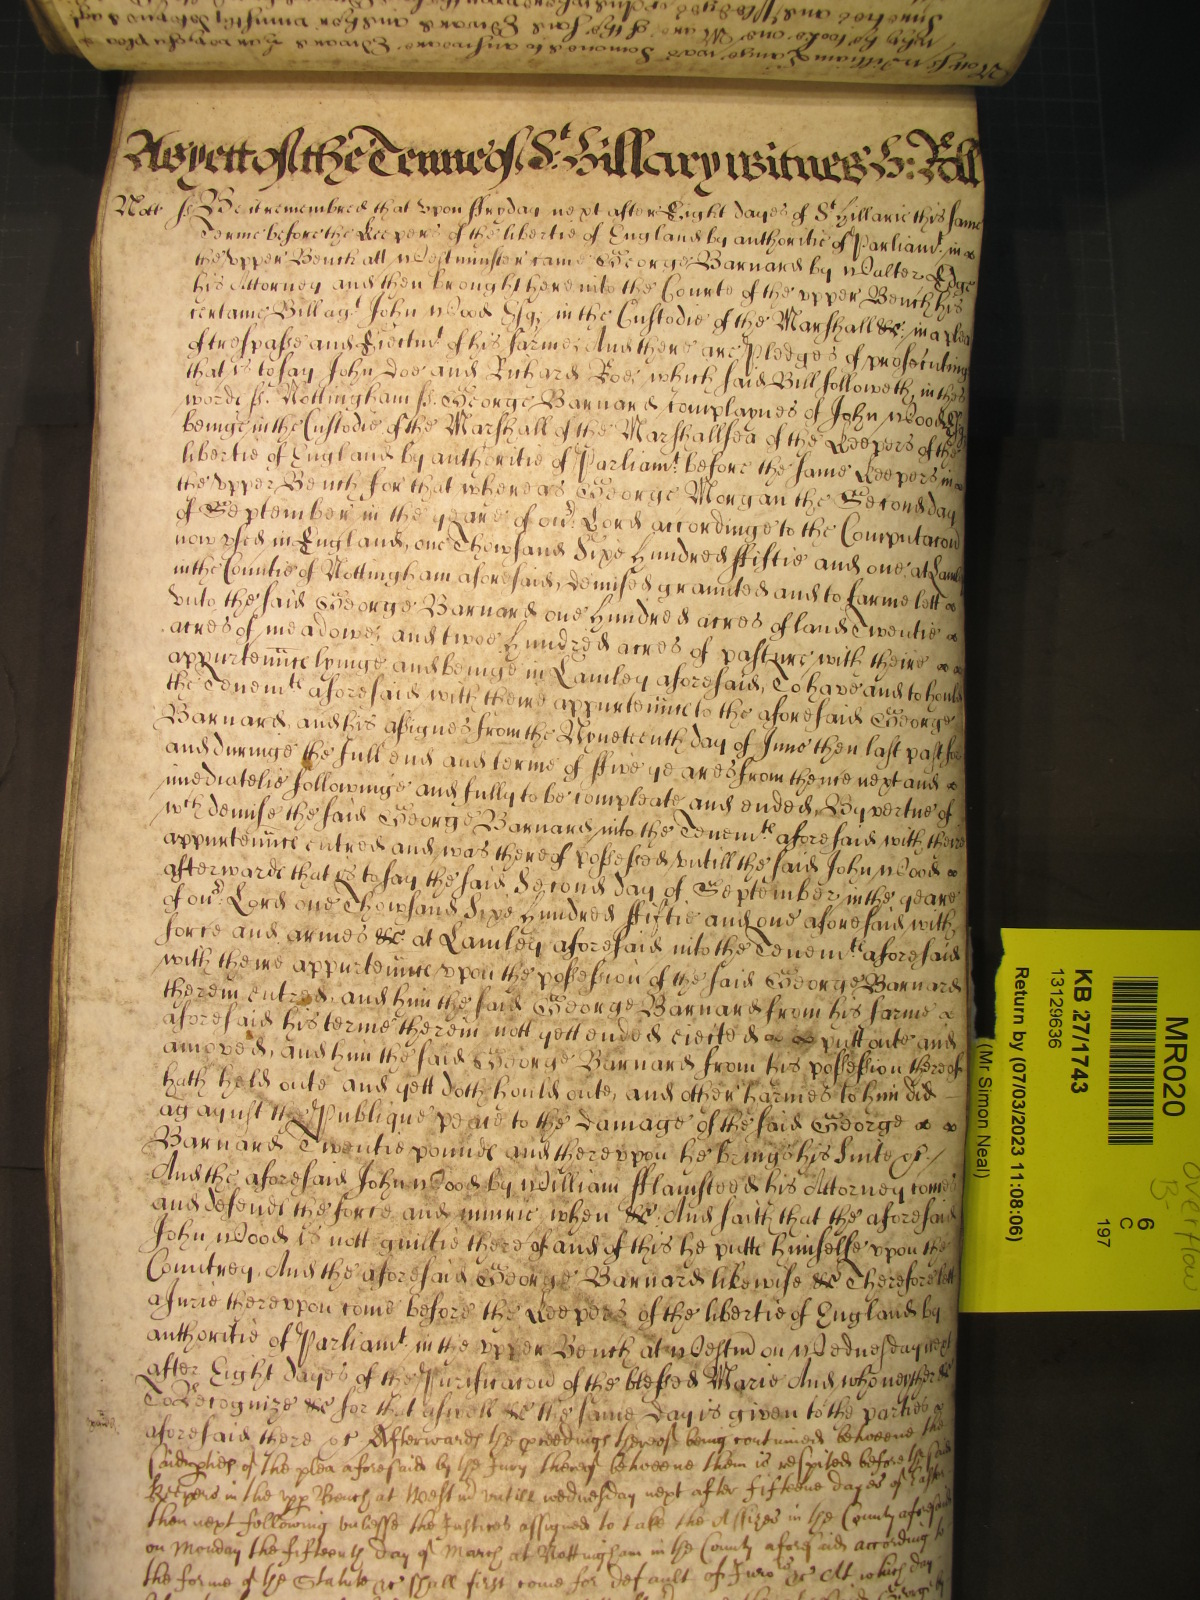 As yett of the Terme of St. Hillary witnes H: Roll
Nott ss Be it remembred that upon ffryday next after Eight dayes of St Hillarie this same
Terme before the Keepers of the libertie of England by authoritie of Parliamt. in
the upper Bench att Westminster came George Barnard by Walter Edge
his Attorney and then brought here into the Courte of the upper Bench his
certaine Bill agt. John Wood Esq in the Custodie of the Marshall &c in a plea
of trespasse and Eiectmt. of his farme And there are Pledges of prosecuting
that is to say John Doe and Richard Roe which said Bill followeth in these
words ss. Nottingham ss. George Barnard complaynes of John Wood Esq
beinge in the Custodie of the Marshall of the Marshallsea of the Keepers of the
libertie of England by authoritie of Parliamt. before the same Keepers in
the upper Bench for that whereas George Morgan the Second day
of September in the yeare of our Lord accordinge to the Computacon
now used in England, one Thowsand Sixe Hundred ffiftie and one at Lamley
in the Countie of Nottingham aforesaid, demised graunted and to farme lett
unto the said George Barnard one hundred acres of land Twentie
acres of meadowe, and twoe hundred acres of pasture with theire
appurtennce lyinge and beinge in Lamley aforesaid, To have and to hould
the Tenemte aforesaid with theire appurtennce to the aforesaid George
Barnard, and his assignes from the Nyneteenth day of June then last past for
and duringe the full end and terme of ffive yeares from thence next and
imediatelie followinge and fully to be compleate and ended, By vertue of
wch demise the said George Barnard into the Tenemte aforesaid with theire
appurtennce entred and was thereof possessed untill the said John Wood
afterwards that is to say the said Second day of September in the yeare
of our Lord one Thowsand Sixe hundred ffiftie and one aforesaid with
force and armes &c at Lamley aforesaid into the Tenemte aforesaid
with theire appurtennce upon the possession of the said George Barnard
therein entred, and him the said George Barnard from his farme
aforesaid his terme therein nott yett ended eiected putt oute and
amoved, and him the said George Barnard from his possession thereof
hath held oute and yett doth hould oute, and other harmes to him did
agaynst the Publique peace to the damage of the said George
Barnard Twentie pounds and thereupon he brings his Suite &c/
And the aforesaid John Wood by William fflamsteed his Attorney comes
and defends the force and iniurie when &c And saith that the aforesaid
John Wood is nott guiltie thereof and of this he putts himselfe upon the
Countrey, And the aforesaid George Barnard likewise &c Therefore lett
a Jurie thereupon come before the Keepers of the libertie of England by
authoritie of Parliamt. in the upper Bench at Westm on Wednesday next
after Eight dayes of the Purificacon of the blessed Marie And who neyther &c
To Recognize &c for that aswell &c the same day is given to the parties
aforesaid there &c Afterwards the proceedings thereof being continued betweene the
said parties of the plea aforesaid by the Jury thereof betweene them is respited before the said
Keepers in the upp Bench at Westm untill wednesday next after fifteene dayes of Easter
then next following unlesse the Justices assigned to take the Assizes in the County aforesaid
on Monday the fifteenth day of March at Nottingham in the County aforesaid according to
the forme of the Statute &c shall first come for default of Juro rs &c At which day
MR020
KB 27/1743
13129636
Return by (07/03/2023 11:08:06)
(Mr Simon Neal)
6
C
197
overflow
B-